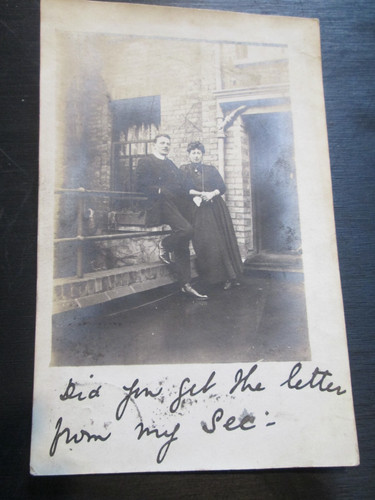 Did you get the letter
from my Sec:-